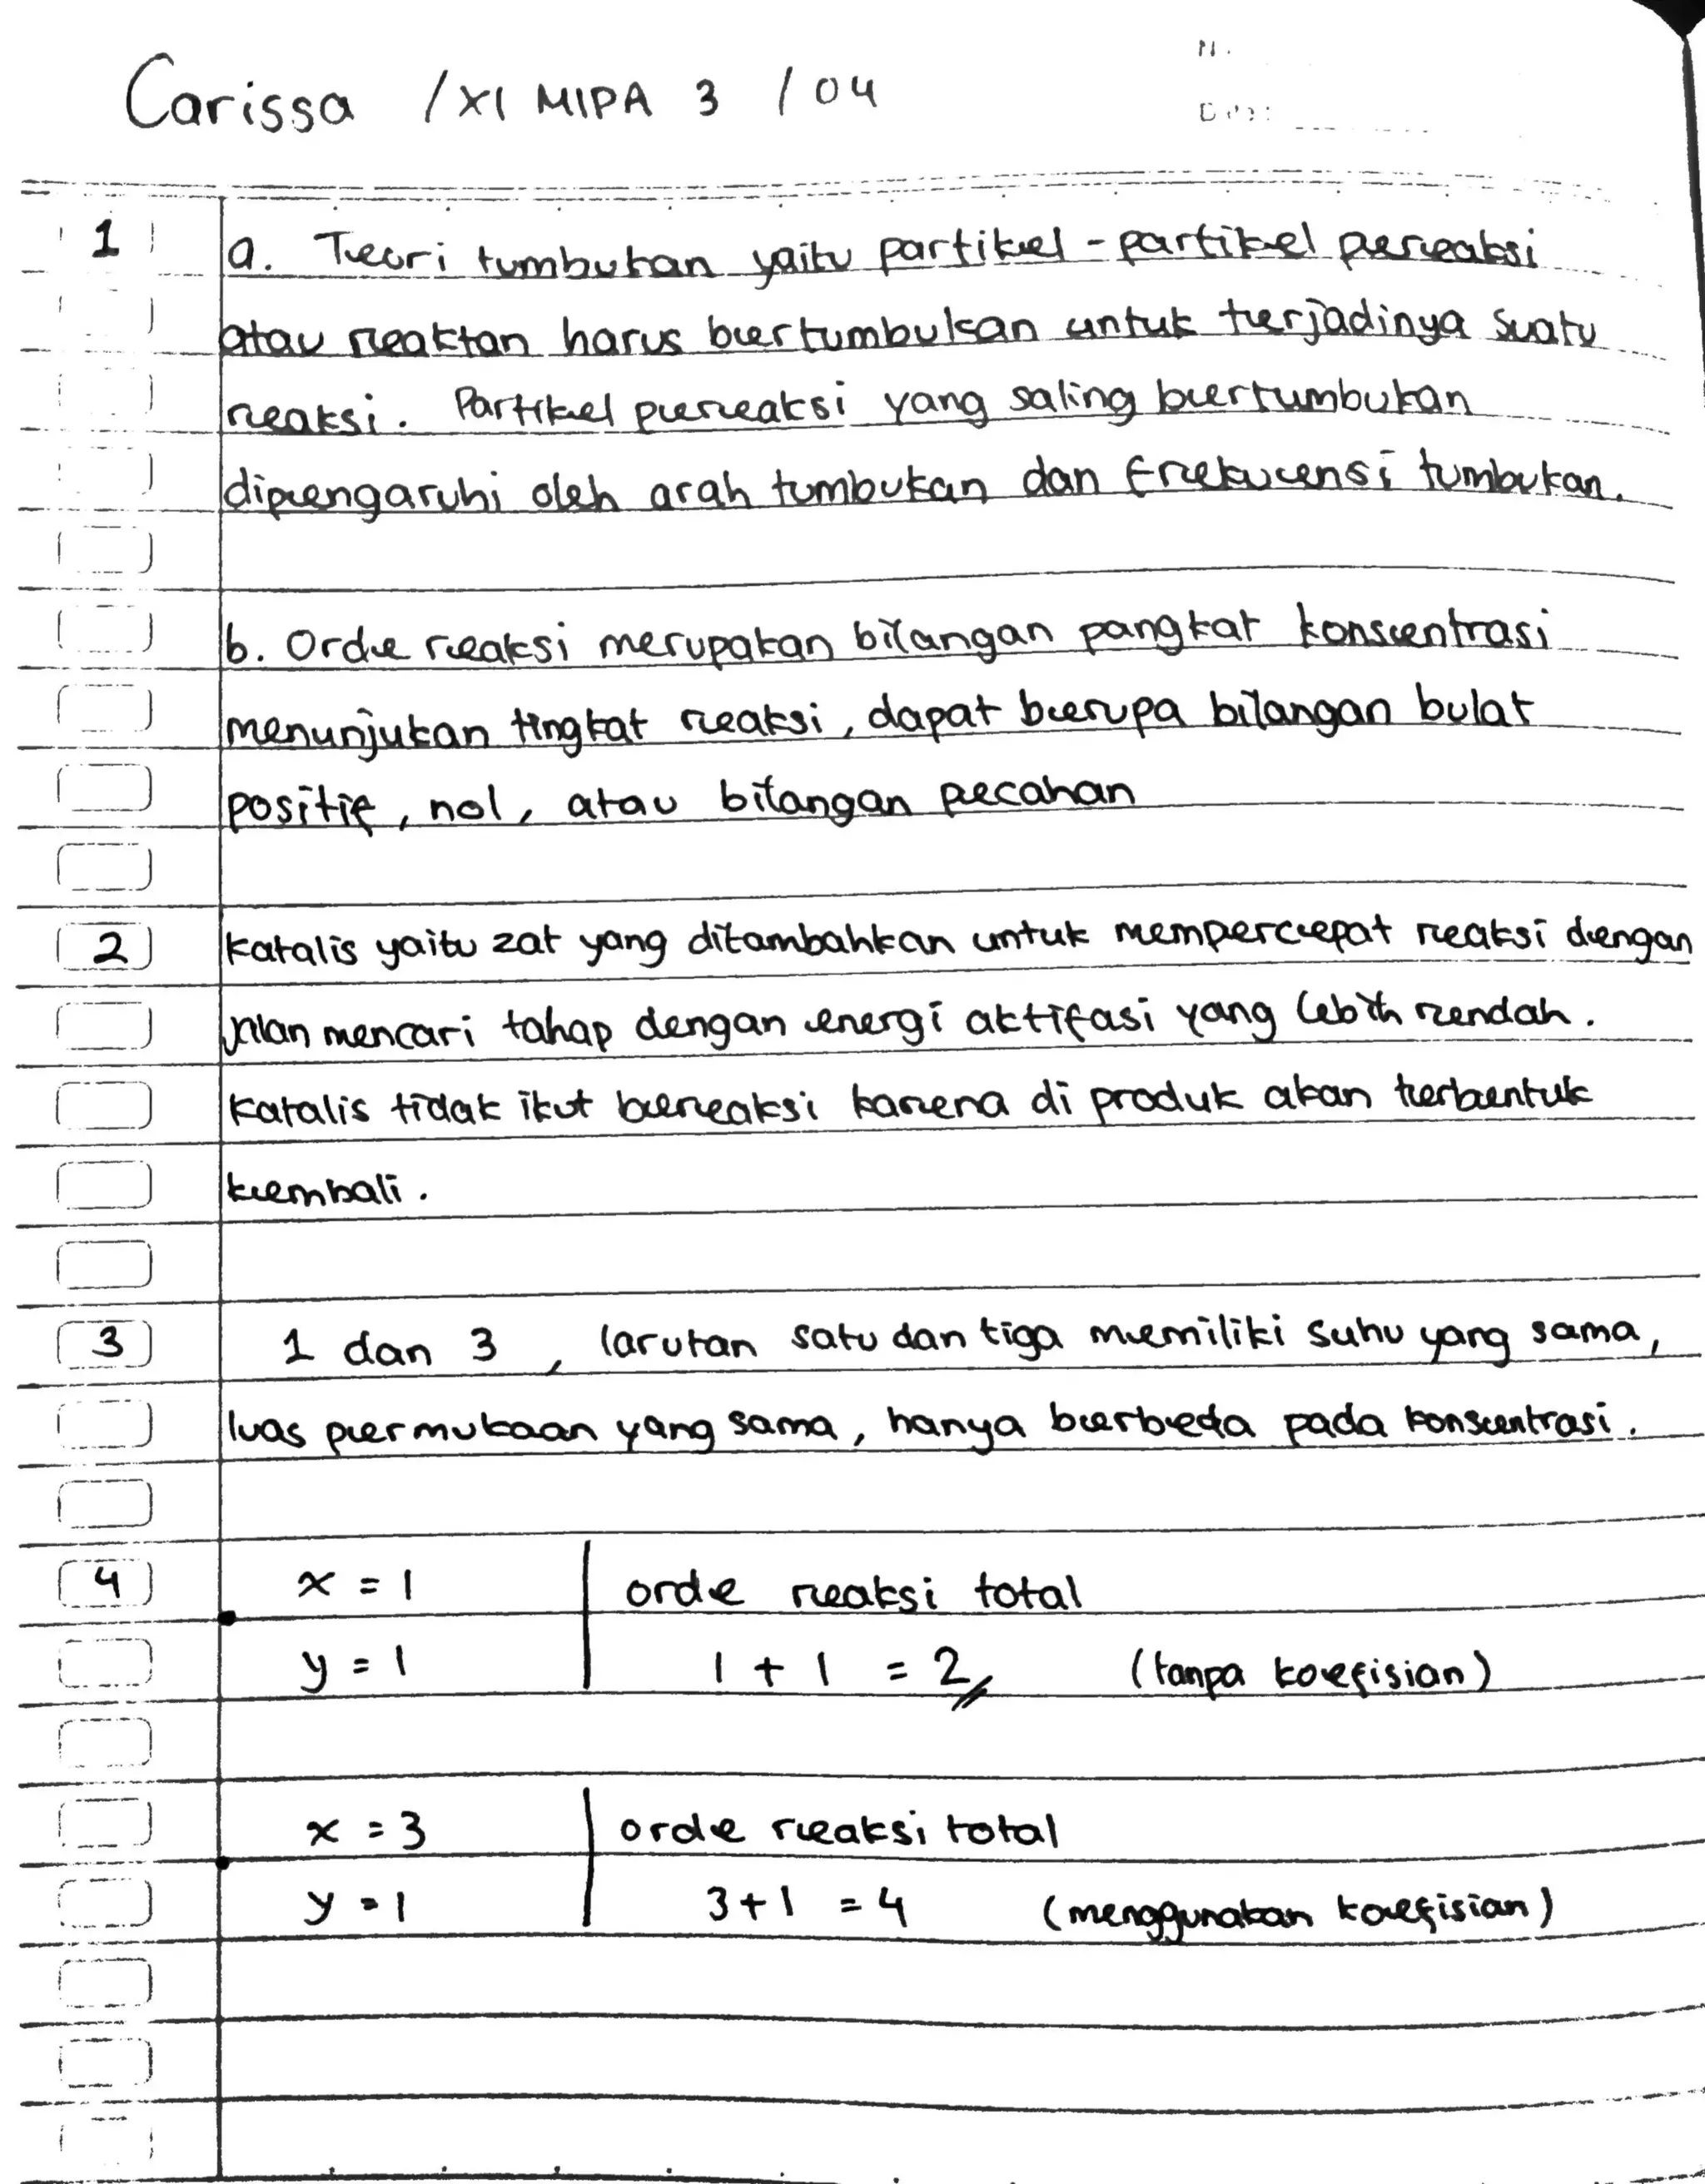 Carissa / XI MIPA 3 / 04
No.
Date:
1 a. Teori tumbukan yaitu partikel - partikel pereaksi
atau reaktan harus bertumbukan untuk terjadinya suatu
reaksi. Partikel pereaksi yang saling bertumbukan
dipengaruhi oleh arah tumbukan dan frekuensi tumbukan.
b. Orde reaksi merupakan bilangan pangkat konsentrasi
menunjukan tingkat reaksi, dapat berupa bilangan bulat
positif, nol, atau bilangan pecahan
2 Katalis yaitu zat yang ditambahkan untuk mempercepat reaksi dengan
jalan mencari tahap dengan energi aktifasi yang lebih rendah.
Katalis tidak ikut bereaksi karena di produk akan terbentuk
kembali.
3 1 dan 3, larutan satu dan tiga memiliki suhu yang sama,
luas permukaan yang sama, hanya berbeda pada konsentrasi.
4 x = 1 orde reaksi total
y = 1 1 + 1 = 2 (tanpa koefisian)
x = 3 orde reaksi total
y = 1 3 + 1 = 4 (menggunakan koefisian)